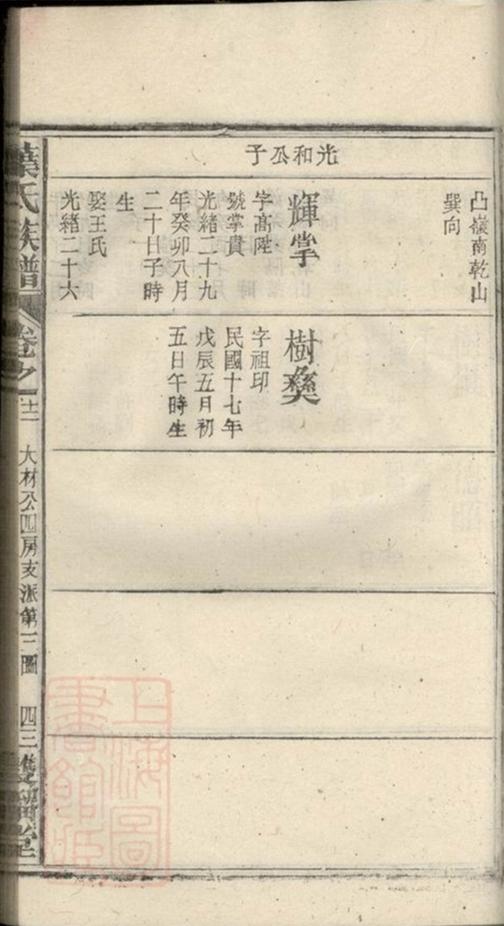 光和公子
凸嶺南乾山
巽向
輝掌
字高陞
號掌貴
光緒二十九
年癸卯八月
二十日子時
生
娶王氏
光緒二十六
樹彝
字祖印
民國十七年
戊辰五月初
五日午時生
葉氏族譜
大材公四房亥派第三圖
四三
雙桂堂
上海圖
書館藏